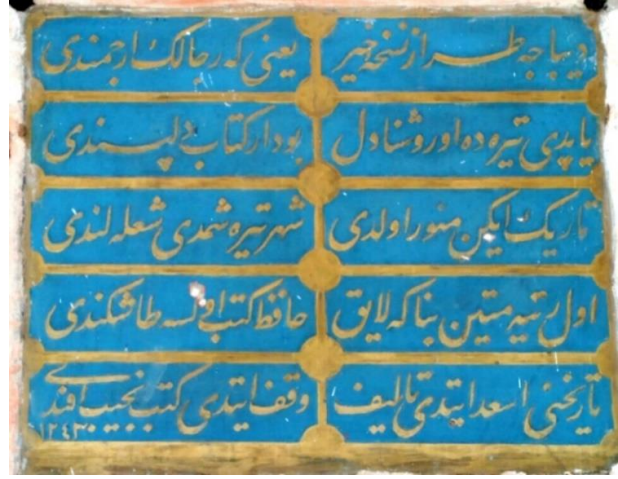 ديباجه طراز نسخه خير يعنى كه رجالك ارجمندى
ياپدى تيره ده او روشنادل بو دار كتاب دلپسندى
تاريك ايكن منور اولدى شهر تيره شمدى شعله لندى
اول رتبه متين بنا كه لايق حافظ كتب اولسه طاشكندى
تاريخنى اسعد ايتدى تاليف وقف ايتدى كتب نجيب افندى
١٢٤٣